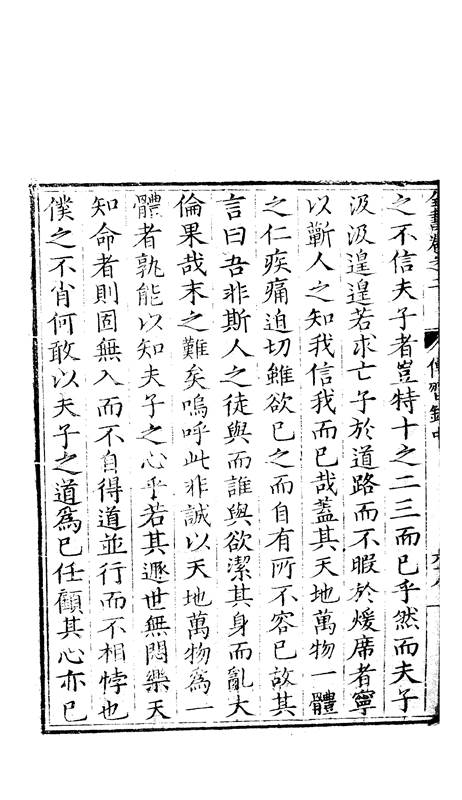 全書卷之二
傳習錄中
之不信夫子者豈特十之二三而已乎然而夫子
汲汲遑遑若求亡子於道路而不暇於煖席者寧
以蘄人之知我信我而已哉蓋其天地萬物一體
之仁疾痛迫切雖欲已之而自有所不容已故其
言曰吾非斯人之徒與而誰與欲潔其身而亂大
倫果哉末之難矣嗚呼此非誠以天地萬物爲一
體者孰能以知夫子之心乎若其遯世無悶樂天
知命者則固無入而不自得道並行而不相悖也
僕之不肖何敢以夫子之道爲已任顧其心亦已